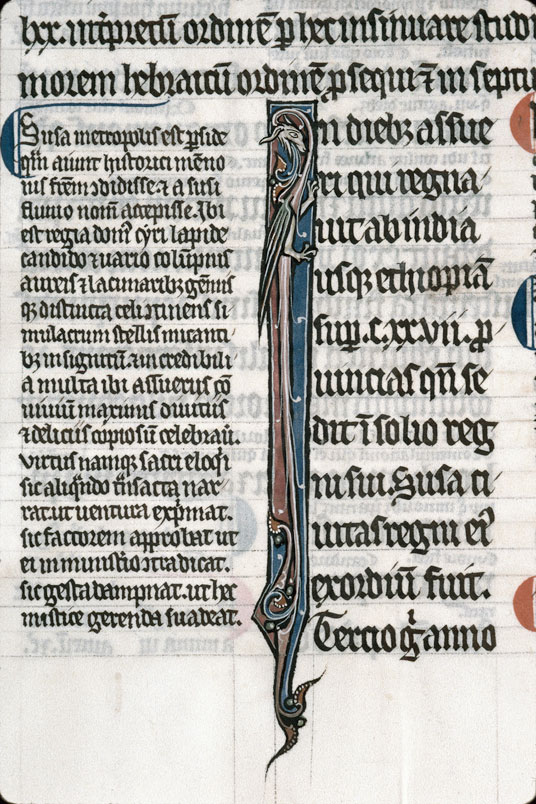 lxx. int̄p̄tetū ordinē ꝑ hec insinuare studu
morem hebraicū ordinē ꝓsequi ⁊ in septu
Susa metropolis est ꝑside
qm̄ aiunt historici mēno
nis fr̄em ↄdidisse. ⁊ a susi
fluuio nom̄ accepisse. Ibi
est regia dom̓ cyri lapide
candido ⁊ uario colūpnis
aureis ⁊ lacunaribꝫ gēmis
qꝫ distincta celi ↄtinens si
mulacrum stellis micanti
bꝫ insignitū. ⁊ incredibili
a multa ibi assuerus cō
uiuiū maximis diuitiis
⁊ deliciis copiosū celebrau̅.
virtus namqꝫ sacri eloqͥ
sic aliqn̄do t̄nsacta nar
rat. ut uentura exp̄mat.
sic factorem approbat ut
ei in ministͥo ↄtradicat.
sic gesta dampnat. ut hec
mistice gerenda suadeat.
In diebꝫ assue
ri qui regna
uit ab india
usqꝫ ethiopiā
suꝑ .c.xx.vii. ꝓ
uincias qn̄ se
dit ī solio reg
ni sui. Susa ci
uitas regni ei̓
exordiū fuit.
Tercio gͥ anno